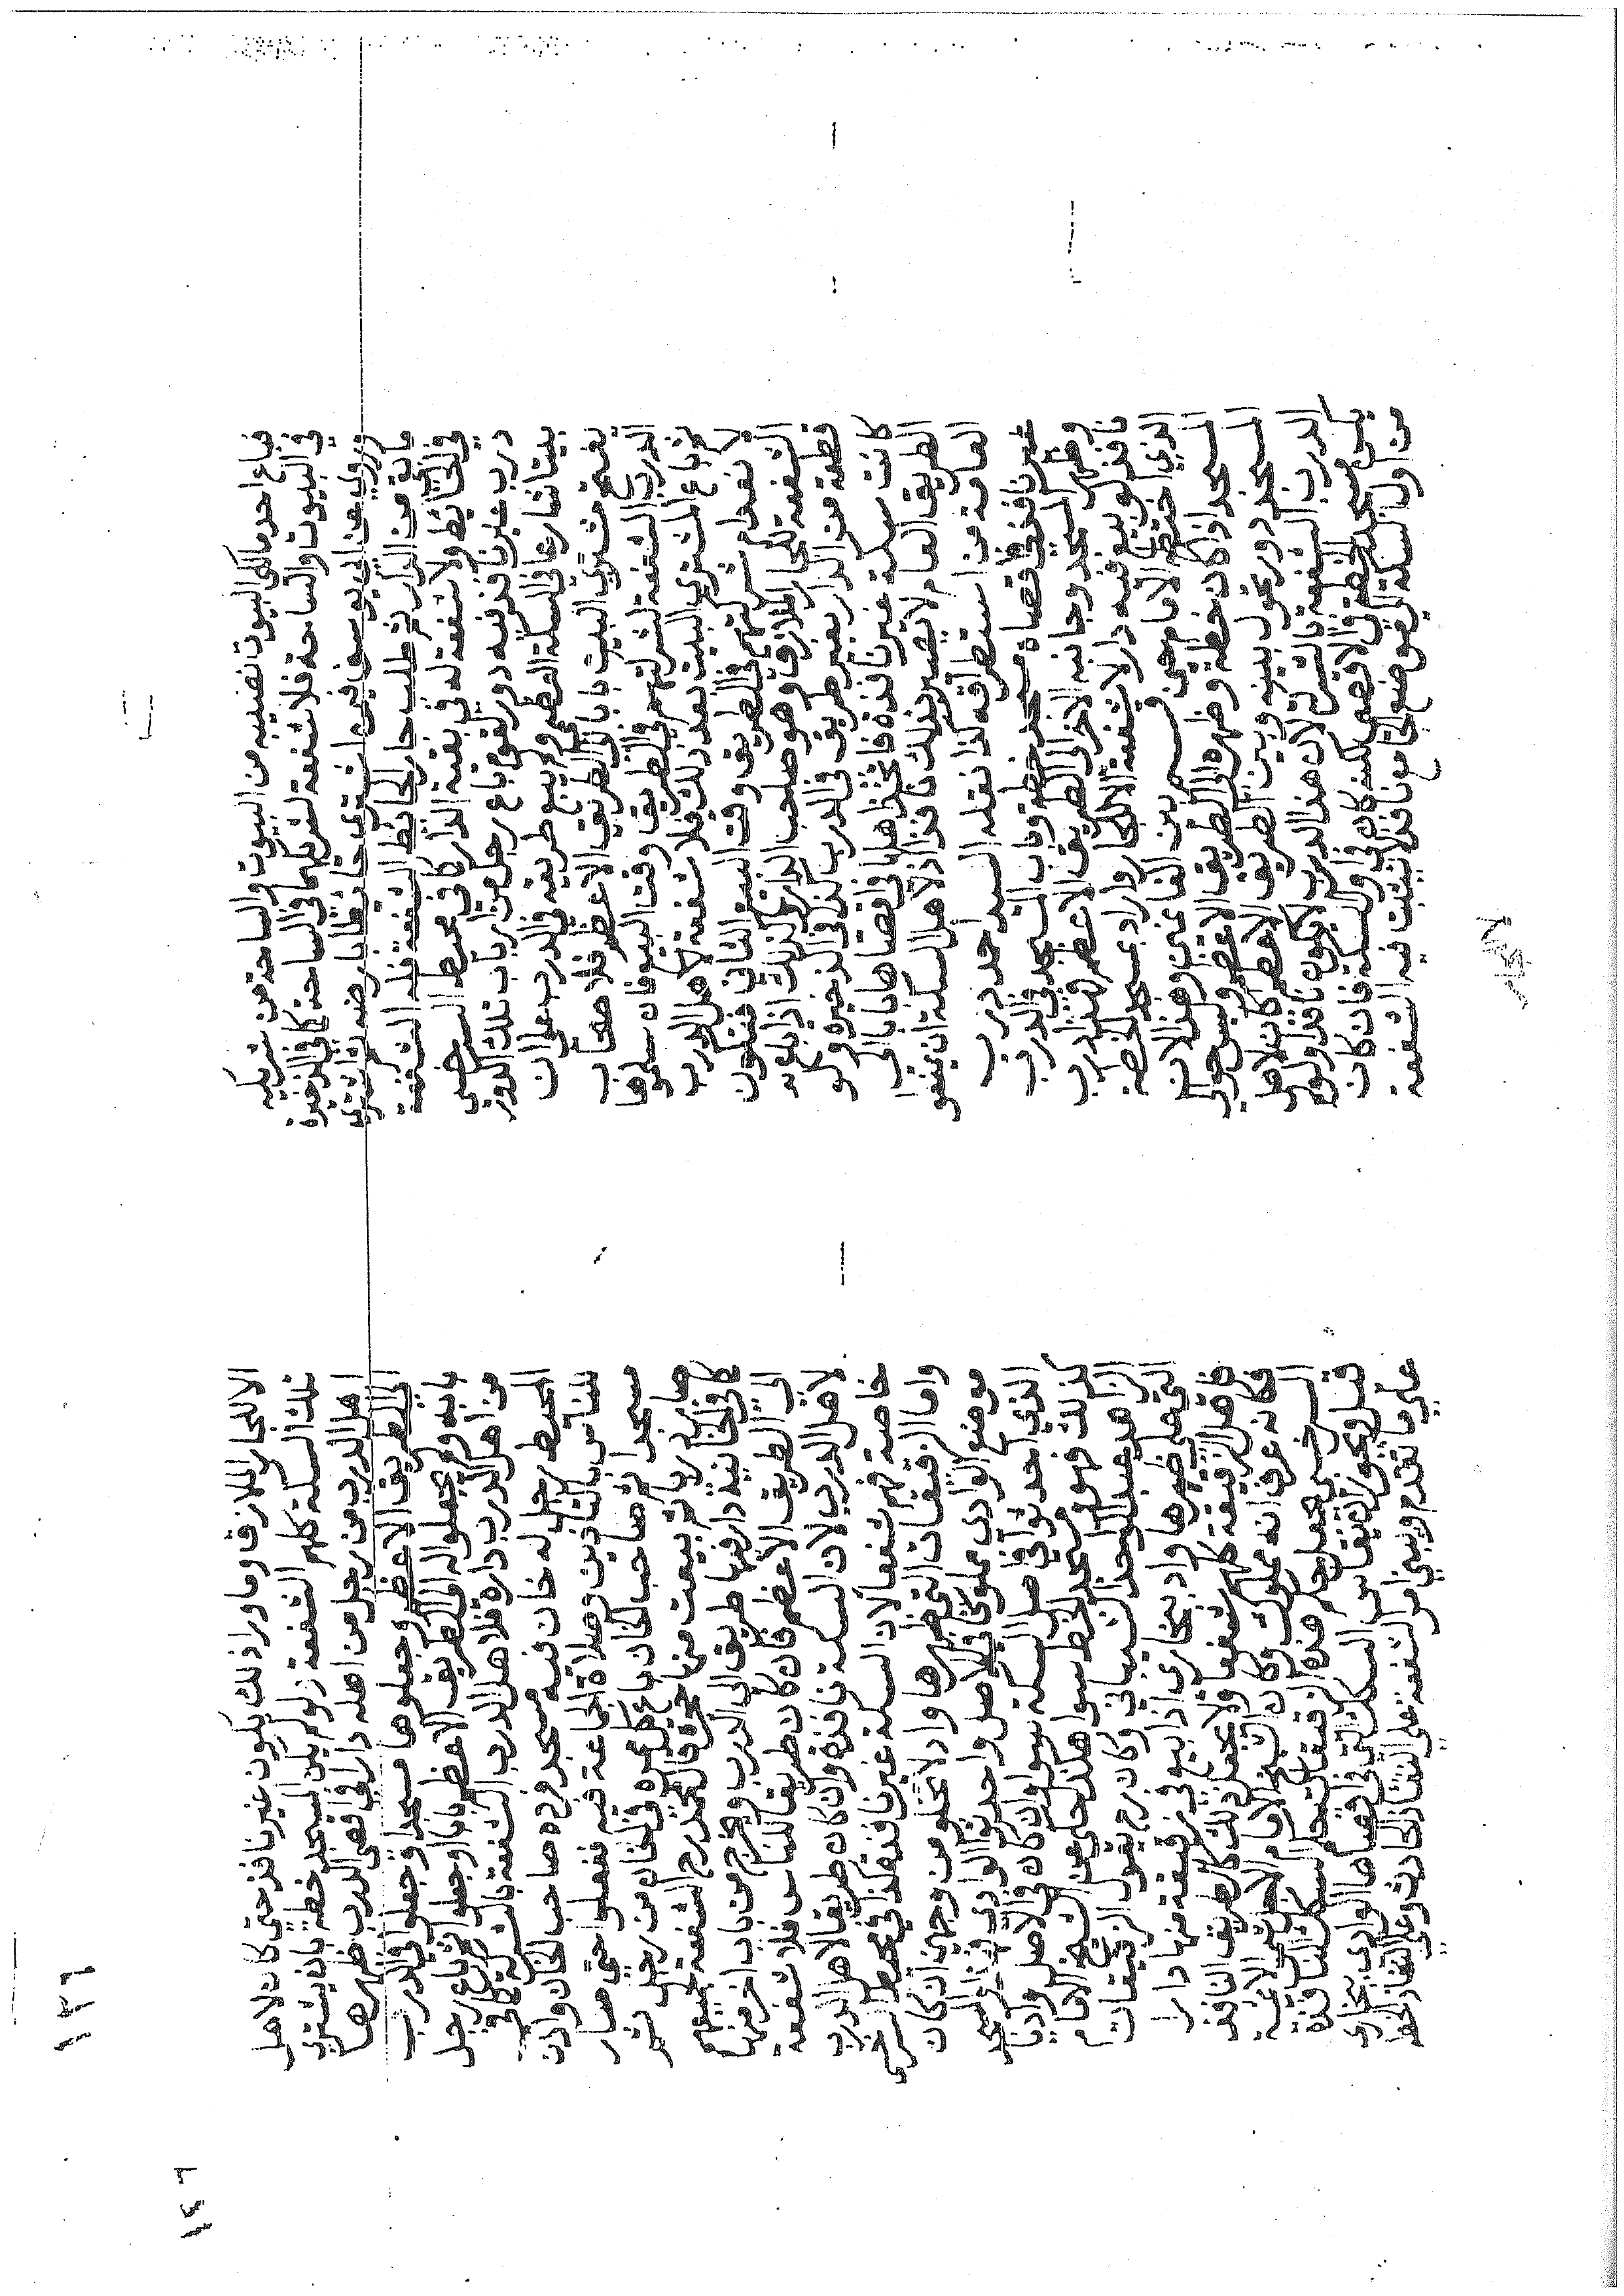 فباع احد مالكي البيوت نصيبه من البيوت والساحة من شريكه
في البيوت والساحة فلا شفعة لشريكهما في الساحة كما في الذخيرة
وروي عن ابي يوسف فيمن اشترى حائطا بارضه ثم اشترى
ما بقي من الدار ثم طلب جار الحائط الشفعة فله الشفعة
في الحائط ولا شفعة له في بقية الدار كما في محيط السرخسي
درب غير نافذ فيه دور لقوم باع رجل من ارباب تلك الدور
بيتا شارعا في السكة العظمى ولم يبع طريقه في الدرب على ان
يفتح مشتري البيت بابا الى الطريق الاعظم فلاصحاب
الدرب الشفعة لشركتهم في الطريق وقت البيع فان سلموها
ثم باع المشتري البيت بعد ذلك فلا شفعة لاهل الدرب
لانعدام شركتهم في الطريق وقت البيع الثاني فتكون
الشفعة للجار الملازق وهو صاحب الدار وكذلك اذا باعوه
قطعة من الدار بغير طريق في الدرب كذا في الذخيرة ولو
كانت سكة غير نافذة فاتخذ اهلها في اقصاها بابا الى
الطريق العام لا يصير بذلك نافذا اذ لاهل السكة ان يمنعو
العامة من استطراقه كذا نقله السيد احمد درب
غير نافذ في اقصاه مسجد خطة وباب المسجد في الدرب
وظهر المسجد وجانبه الاخر الى الطريق الاعظم فهذا درب
نافذ لو بيع فيه دار لا شفعة الا للجار واراد بمسجد الخطة
الذي اختطه الامام حين قسم بين الغانمين وهذا لان
المسجد اذا كان خطة وظهره الى الطريق الاعظم وليس حول
المسجد دور تحول بينه وبين الطريق الاعظم كان لاهل
الدرب الشفعة بالشركة لان هذا الدرب لا يكون نافذا ولو لم
يكن مسجد الخطة في الاقصى لكنه كان في اول السكة فان كان
من اول السكة الى موضع نافذ لا تثبت فيه الشفعة
١٣٦
١٤٦
الا للجار الملازق وما وراء ذلك يكون غير نافذ حتى كان لاهل
تلك السكة كلهم الشفعة ولو لم يكن المسجد خطة بان يشتري
اهل الدرب من رجل من اهله دارا في اقصى الدرب ظهرها
الى الطريق الاعظم وجعلوها مسجدا وجعلوا في الدرب
بابه ولم يجعلوا له الى الطريق الاعظم بابا او جعلوا ثم باع رجل
من اهل الدرب داره فلاهل الدرب الشفعة بالشركة كما في
المحيط رجل له خان فيه مسجد فرزه صاحب الخان واذن
للناس بالتاذين وصلاة الجماعة فيه ففعلوا حتى صار
مسجدا ثم صاحب الخان باع كل حجرة في الخان من رجل حتى
صار دربا ثم بيعت منها حجرة قال محمد رح الشفعة لجميعهم
كما في الخانية دار فيها طريق الى الدرب ومخرج من باب اخر منها
الى الطريق الاعظم فان كان طريقا للناس فلا شفعة
لاهل الدرب لان السكة نافذة وان كان طريقا لاهل الدرب
خاصة فهم شفعاء لان السكة غير نافذة كذا في محيط السرخسي
واما الزقيقات التي ظهرها واد لا تخلو من وجهين ان كان
موضع الوادي مملوكا في الاصل واحدثوا الوادي فهذا والمسجد
الذي احدثوا في اصل السكة سوا وان كان في الاصل واديا
كذلك فهو ومسجد الخطة سوا هكذا حكي عن الشيخ الامام
الزاهد عبد الواحد الشيباني وكان رح يقول الزقيقات
التي على ظهرها واد ببخارى اذا بيع في زقيقة منها دار
فاهل الزقيقة كلهم شفعا ولا يجعل ذلك كالطريق النافذ
فكانه عرف انه مملوك وكان الشيخ الامام الاجل شمس الائمة
السرخسي يجعل حكم هذه الزقيقات حكم السكك النافذة
قيل ويجوز ان يقاس السكك التي في اقصاها الوادي ببخارى
على ما تقدم ويبني امر الشفعة على النفاذ الحادث وعلى النفاذ الخطة